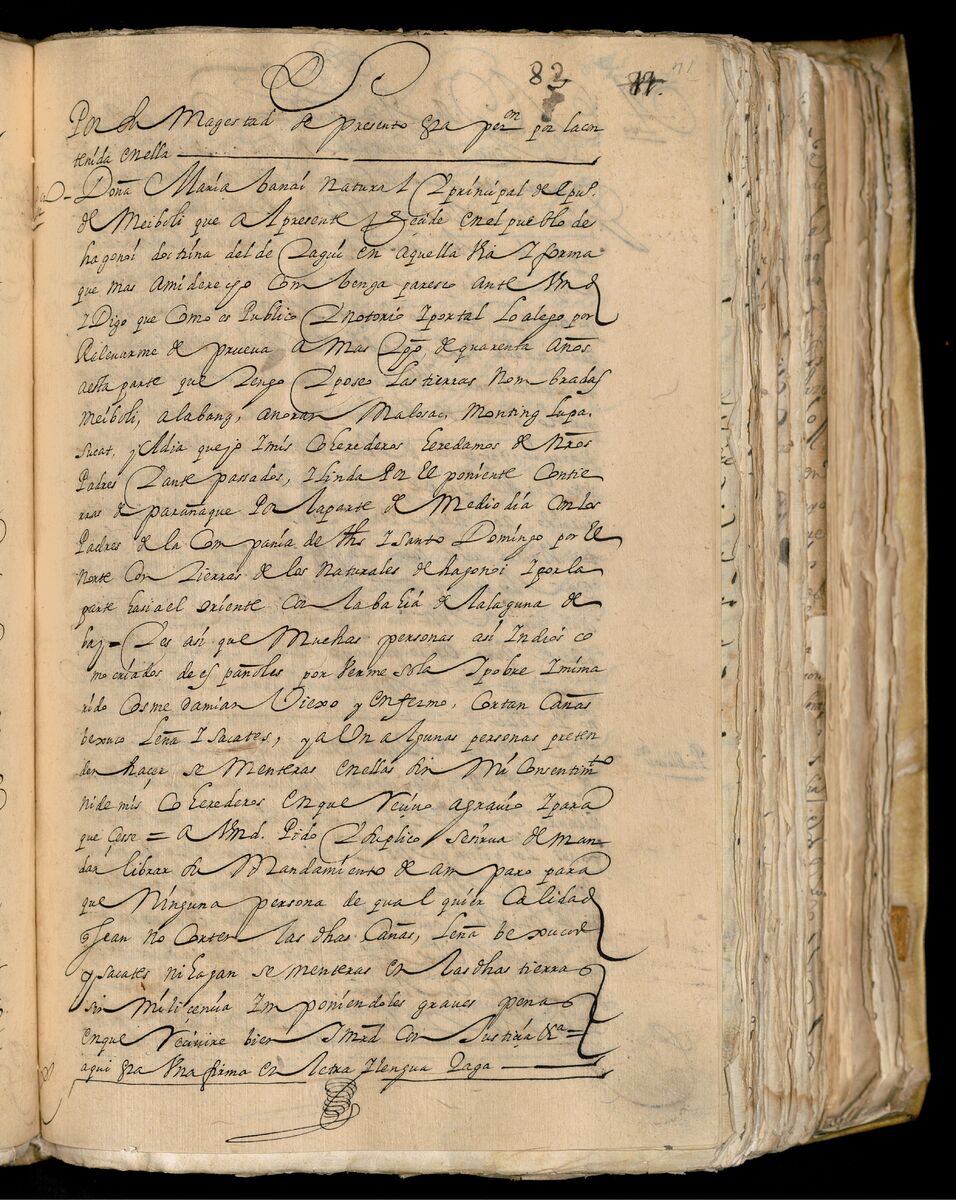 83
Por su Magestad se presento esta petⁿ por la con
tenida en ella
Doña Maria banai natural y principal del pueº
de Meiboli que al presente Reside en el pueblo de
hagonoi doctrina del de taguí en aquella Via y forma
que mas a mi derecho Combenga paresco ante Vmd
y Digo que como es Publico y notorio y por tal lo alego por
Relevarme de prueva a mas tpo de quarenta años
a esta parte que tengo y poseo las tierras nombradas
meiboli, alabang, anoran Malosac, Monting lupa
sucat, y que yo y mis coherederos heredamos de nros
Padres y ante passados, y linda Por el poniente con tie
rras de parañaque Por la parte de Medio dia con los
Padres de la Compania de Jhs y Santo Domingo por el
norte con tierras de los naturales de hagonoi y por la
parte hasia el oriente con la bahia de la laguna de
bay = y es asi que Muchas personas asi Indios co
mo criados de españoles por Verme sola y pobre y mi ma
rido Cosme damian Viexo y enfermo, Cortan Cañas
bexuco leña y sacates, y aUn algunas personas preten
den hacer sementeras en ellas sin mi consentimto
ni de mis coherederos en que recivo agravio y para
que cese = a Vmd. Pido y suplico se sirva de man
dar librar su Mandamiento de amparo para
que Ninguna persona de qual quier calidad
q sean no Corten las dhas Cañas, leña bexucos
y sacates ni hagan sementeras en las dhas tierras
sin mi licencia Imponiendoles graves penas
en que recivire bien y mrd con Justicia &a =
aqui esta Una firma en letra y lengua taga